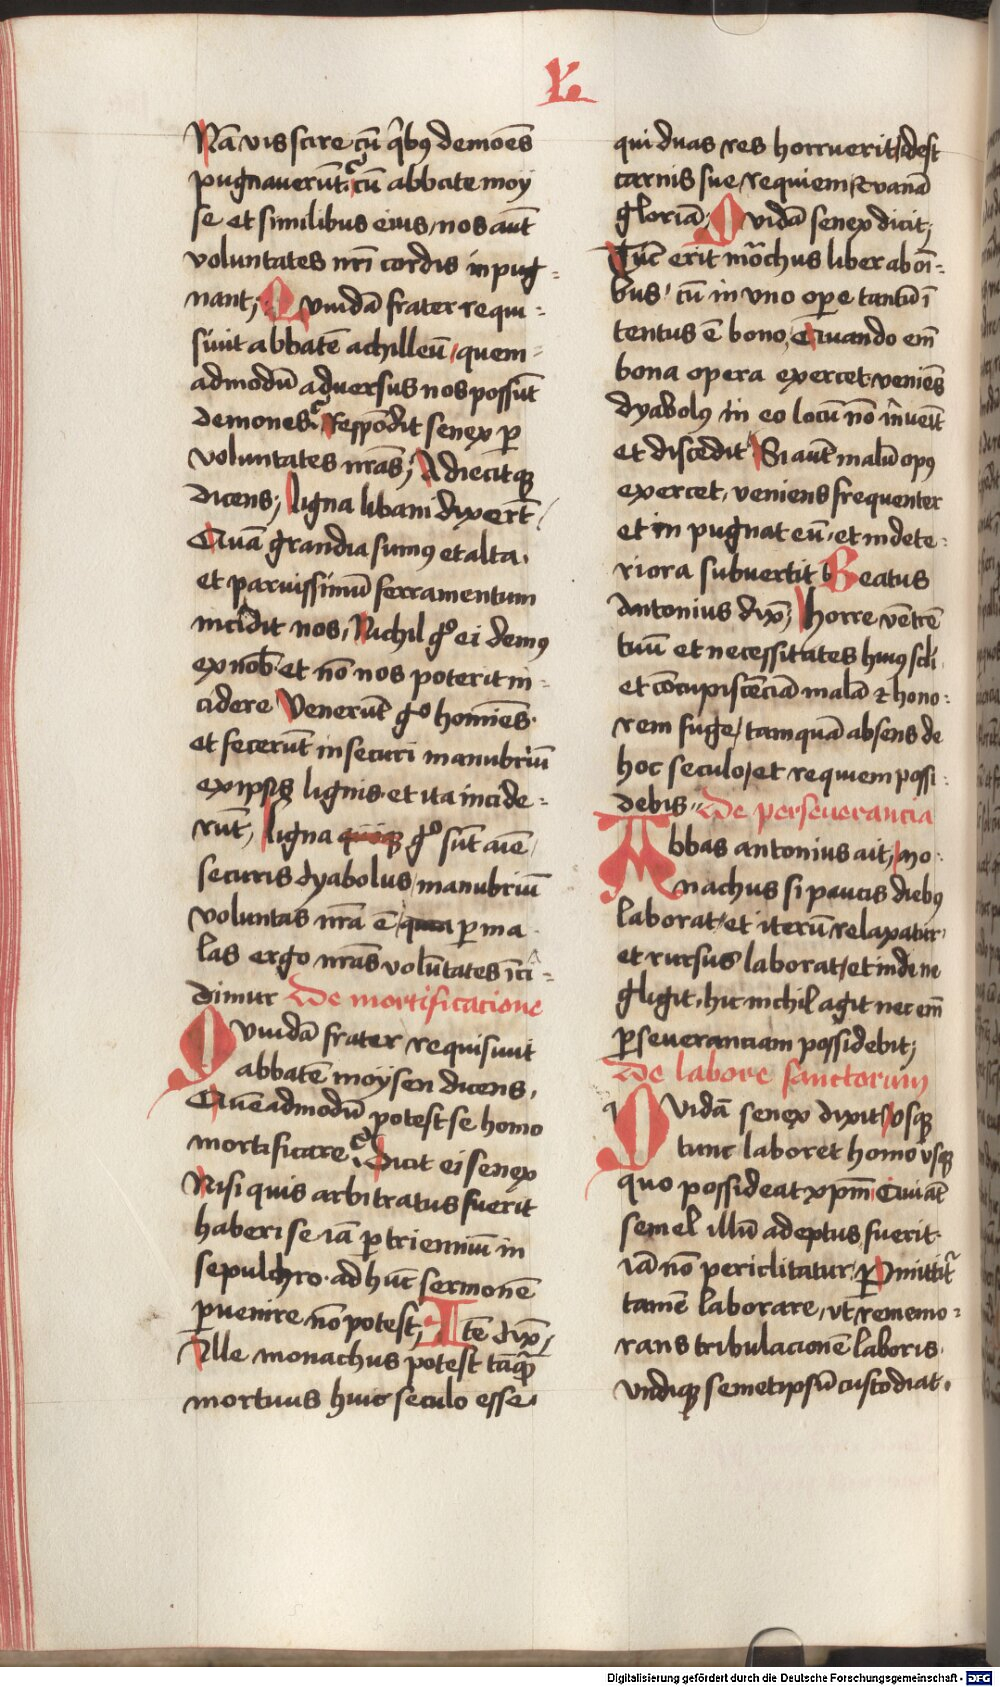 Nā vis scire cū qͥbꝯ demoēs
pugnauerūt cū abbate moy
se et similibus eius nos aūt
voluntates nr̄i cordis inpug-
nant; Quidā frater requi-
siuit abbatē achilleū quem-
admodū aduersus nos possūt
demones respōdit senex ꝑ
voluntates nr̄as; Adiecitꝙ
dicens; ligna libani dixerūt
Quā grandia sumꝯ et alta.
et paruissimū ferramentum
incidit nos, Nichil gͦ ei demꝯ
ex nob̄ et nō nos poterit in-
cidere Venerūt gͦ homīes.
et fecerūt in securi manubriū
ex ipsis lignis et ita incide-
rūt, ligna gͦ sūt aīe
securis dyabolus manubriū
voluntas nr̄a ē ꝑ ma
las ergo nr̄as volūtates īci-
dimur De mortificacione
Quidā frater requisiuit
abbatē moysen dicens,
Quēadmodū potest se homo
mortificare Dicit ei senex
Nisi quis arbitratus fuerit
haberi se iā ꝑ trienniū in
sepulchro ad hūc sermonē
ꝑuenire nō potest, Itē dix̄
Ille monachus potest tāqͣ
mortuus huic seculo esse.
L
qui duas res horruerit idest
carnis sue requiem et vanā
gloriā; Quidā senex dicit;
Tūc erit mōchus liber ab oī-
bus cū in vno oꝑe tantū ī
tentus ē bono, Quando em̄
bona opera exercet veniēs
dyabolꝯ in eo locū nō īueīt
et discedit Si aūt malū opꝯ
exercet, veniens frequenter
et in pugnat eū et in dete-
riora subuertit Beatus
Antonius dix̄; horre vētrē
tuū et necessitates huiꝯ scl̄i
et cōcupiscēciā malā et hono-
rem fuge, tamquā absens de
hoc seculo, et requiem possi-
debis De perseuerancia
Abbas antonius ait, mo-
nachus si paucis diebꝯ
laborat et iterū relaxatur
et rursus laborat, et inde ne
gligit, hic nichil agit nec em̄
ꝑseueranciam possidebit;
De labore sanctorum
Quidā senex dixit vsqꝫ
tunc laboret homo vsqꝫ
quo possideat xp̄m Qui aūt
semel illū adeptus fuerit
iā nō periclitatur Pmittitͬ
tamē laborare, vt rememo-
rans tribulacionē laboris
vndiqꝫ semetipsū custodiat.
Digitalisierung gefördert durch die Deutsche Forschungsgemeinschaft - DFG